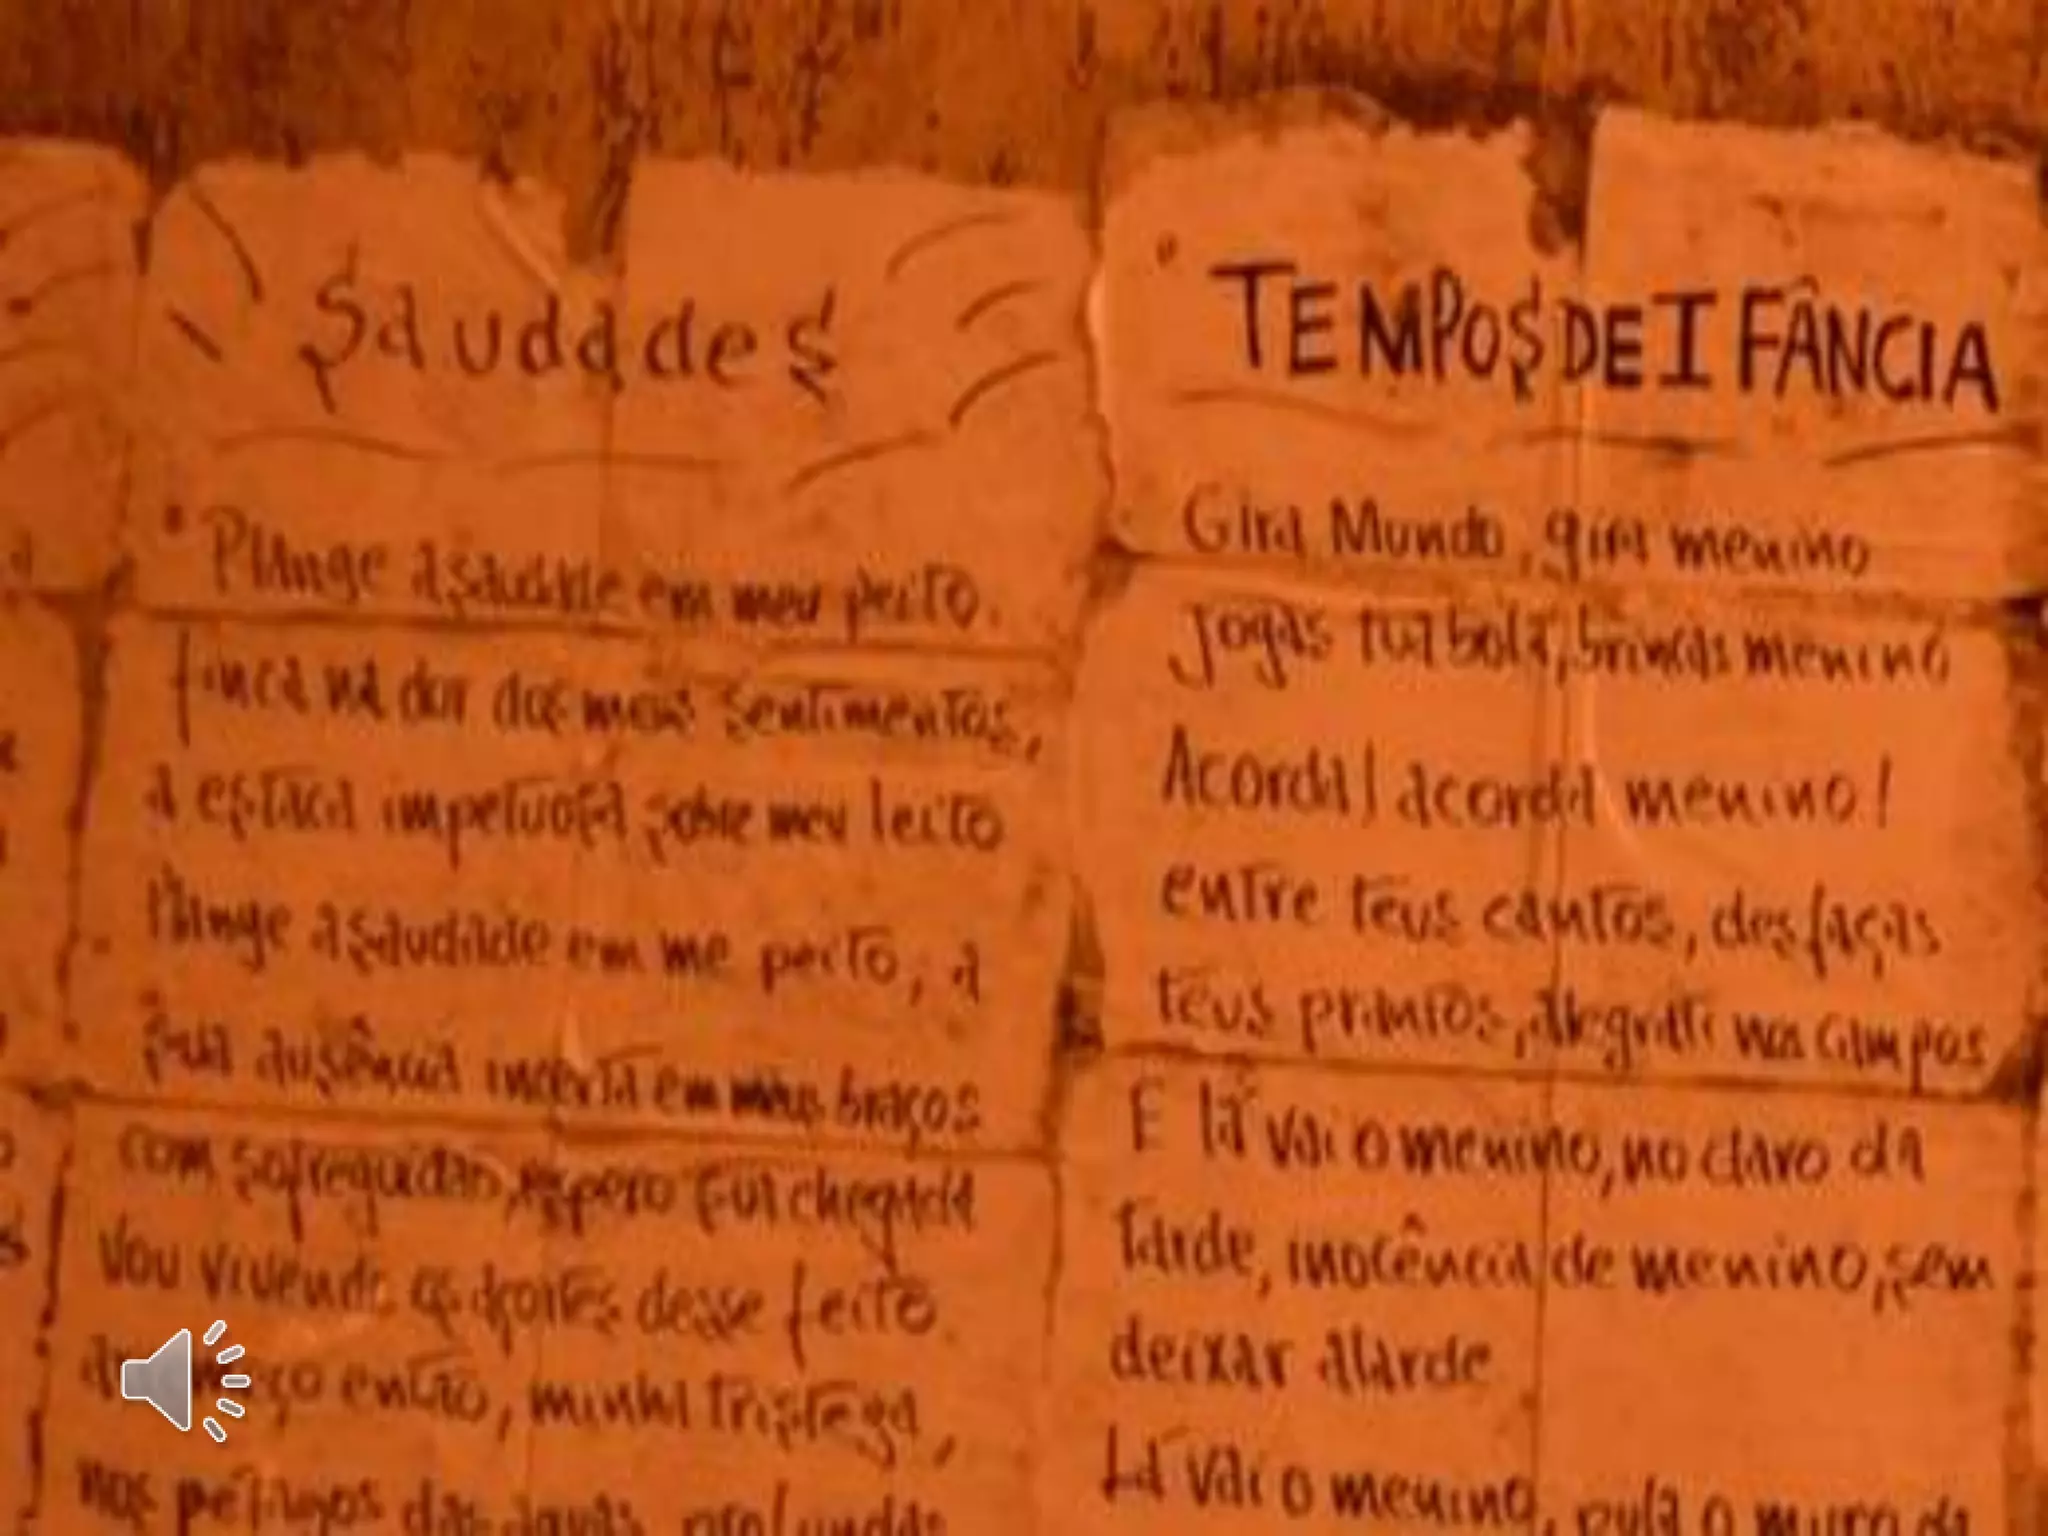 Saudades
Plange a saudade em meu peito.
finca na dor dos meus sentimentos,
a estaca impetuosa sobre meu leito
Plange a saudade em me peito, a
sua ausência incerta em meus braços
com sofreguidão, espero sua chegada
Vou vivendo os açoites desse feito
então, minha tristeza,
nos pélagos das águas profundas
TEMPOS DE IFÂNCIA
Gira Mundo, gira menino
jogas tua bola, brincas menino
Acorda! acorda menino!
entre teus cantos, desfaças
teus prantos, alegrati nos campos
E lá vai o menino, no claro da
tarde, inocência de menino, sem
deixar alarde
Lá vai o menino, pula o muro da